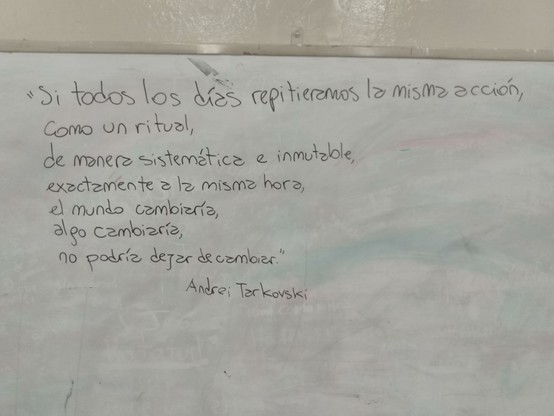 "Si todos los días repitieramos la misma acción,
como un ritual,
de manera sistemática e inmutable,
exactamente a la misma hora,
el mundo cambiaría,
algo cambiaría,
no podría dejar de cambiar."
Andrei Tarkovski